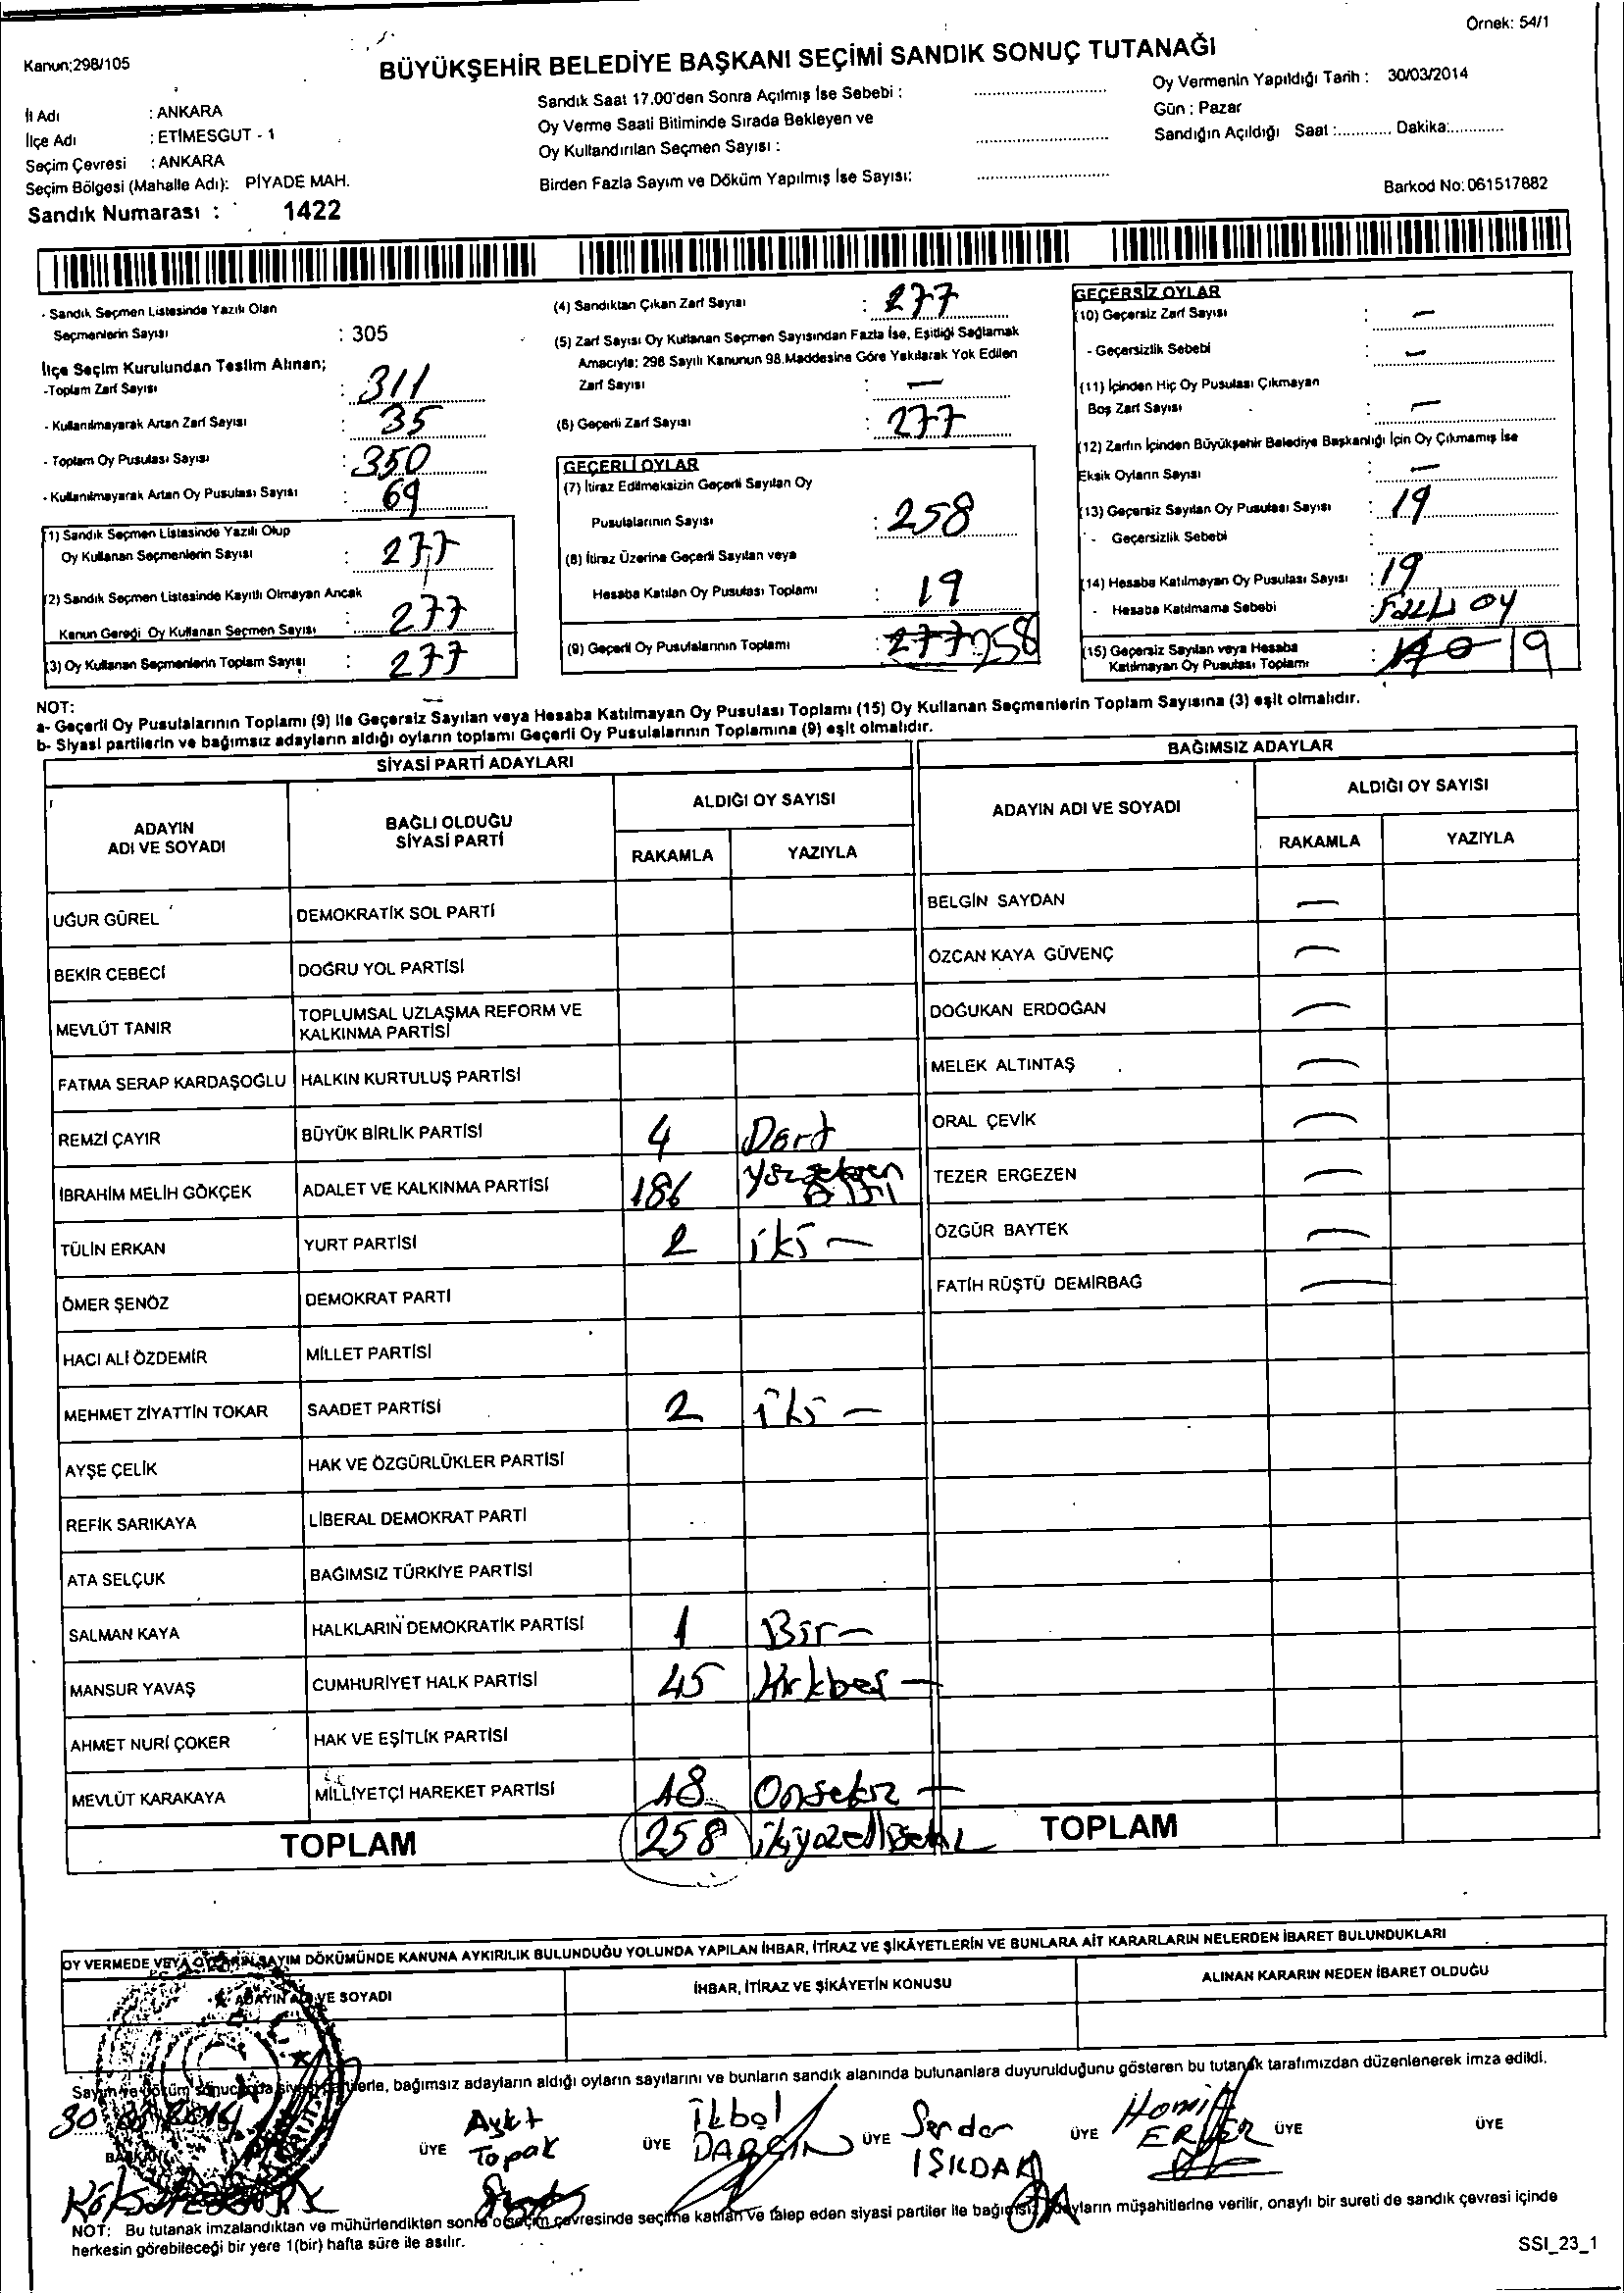 Örnek: 54/1
Kanun;298/105
BÜYÜKŞEHİR BELEDİYE BAŞKANI SEÇİMİ SANDIK SONUÇ TUTANAĞI
İl Adı : ANKARA
İlçe Adı : ETİMESGUT - 1
Seçim Çevresi : ANKARA
Seçim Bölgesi (Mahalle Adı): PİYADE MAH.
Sandık Numarası : 1422
Sandık Saat 17.00'den Sonra Açılmış İse Sebebi :
Oy Verme Saati Bitiminde Sırada Bekleyen ve
Oy Kullandırılan Seçmen Sayısı :
Birden Fazla Sayım ve Döküm Yapılmış İse Sayısı:
Oy Vermenin Yapıldığı Tarih : 30/03/2014
Gün : Pazar
Sandığın Açıldığı Saat :............ Dakika:............
Barkod No: 061517882
- Sandık Seçmen Listesinde Yazılı Olan
Seçmenlerin Sayısı : 305
İlçe Seçim Kurulundan Teslim Alınan;
-Toplam Zarf Sayısı : 311
- Kullanılmayarak Artan Zarf Sayısı : 35
- Toplam Oy Pusulası Sayısı : 350
- Kullanılmayarak Artan Oy Pusulası Sayısı : 69
(1) Sandık Seçmen Listesinde Yazılı Olup
Oy Kullanan Seçmenlerin Sayısı : 277
(2) Sandık Seçmen Listesinde Kayıtlı Olmayan Ancak
Kanun Gereği Oy Kullanan Seçmen Sayısı : 277
(3) Oy Kullanan Seçmenlerin Toplam Sayısı : 277
(4) Sandıktan Çıkan Zarf Sayısı : 277
(5) Zarf Sayısı Oy Kullanan Seçmen Sayısından Fazla İse, Eşitliği Sağlamak
Amacıyla; 298 Sayılı Kanunun 98.Maddesine Göre Yakılarak Yok Edilen
Zarf Sayısı : —
(6) Geçerli Zarf Sayısı : 277
GEÇERLİ OYLAR
(7) İtiraz Edilmeksizin Geçerli Sayılan Oy
Pusulalarının Sayısı : 258
(8) İtiraz Üzerine Geçerli Sayılan veya
Hesaba Katılan Oy Pusulası Toplamı : 19
(9) Geçerli Oy Pusulalarının Toplamı : 277 258
GEÇERSİZ OYLAR
(10) Geçersiz Zarf Sayısı : —
- Geçersizlik Sebebi : —
(11) İçinden Hiç Oy Pusulası Çıkmayan
Boş Zarf Sayısı : —
(12) Zarfın İçinden Büyükşehir Belediye Başkanlığı İçin Oy Çıkmamış İse
Eksik Oyların Sayısı : —
(13) Geçersiz Sayılan Oy Pusulası Sayısı : 19
- Geçersizlik Sebebi :
(14) Hesaba Katılmayan Oy Pusulası Sayısı : 19
- Hesaba Katılmama Sebebi : oy
(15) Geçersiz Sayılan veya Hesaba
Katılmayan Oy Pusulası Toplamı : 19
NOT:
a- Geçerli Oy Pusulalarının Toplamı (9) ile Geçersiz Sayılan veya Hesaba Katılmayan Oy Pusulası Toplamı (15) Oy Kullanan Seçmenlerin Toplam Sayısına (3) eşit olmalıdır.
b- Siyasi partilerin ve bağımsız adayların aldığı oyların toplamı Geçerli Oy Pusulalarının Toplamına (9) eşit olmalıdır.
SİYASİ PARTİ ADAYLARI
ADAYIN ADI VE SOYADI
BAĞLI OLDUĞU SİYASİ PARTİ
ALDIĞI OY SAYISI
RAKAMLA YAZIYLA
UĞUR GÜREL DEMOKRATİK SOL PARTİ
BEKİR CEBECİ DOĞRU YOL PARTİSİ
MEVLÜT TANIR TOPLUMSAL UZLAŞMA REFORM VE KALKINMA PARTİSİ
FATMA SERAP KARDAŞOĞLU HALKIN KURTULUŞ PARTİSİ
REMZİ ÇAYIR BÜYÜK BİRLİK PARTİSİ 4 Dört
İBRAHİM MELİH GÖKÇEK ADALET VE KALKINMA PARTİSİ 186
TÜLİN ERKAN YURT PARTİSİ 2 iki —
ÖMER ŞENÖZ DEMOKRAT PARTİ
HACI ALİ ÖZDEMİR MİLLET PARTİSİ
MEHMET ZİYATTİN TOKAR SAADET PARTİSİ 2 iki —
AYŞE ÇELİK HAK VE ÖZGÜRLÜKLER PARTİSİ
REFİK SARIKAYA LİBERAL DEMOKRAT PARTİ
ATA SELÇUK BAĞIMSIZ TÜRKİYE PARTİSİ
SALMAN KAYA HALKLARIN DEMOKRATİK PARTİSİ 1 Bir —
MANSUR YAVAŞ CUMHURİYET HALK PARTİSİ 45 Kırkbeş —
AHMET NURİ ÇOKER HAK VE EŞİTLİK PARTİSİ
MEVLÜT KARAKAYA MİLLİYETÇİ HAREKET PARTİSİ 18 Onsekiz —
TOPLAM 258
BAĞIMSIZ ADAYLAR
ADAYIN ADI VE SOYADI
ALDIĞI OY SAYISI
RAKAMLA YAZIYLA
BELGİN SAYDAN —
ÖZCAN KAYA GÜVENÇ —
DOĞUKAN ERDOĞAN —
MELEK ALTINTAŞ —
ORAL ÇEVİK —
TEZER ERGEZEN —
ÖZGÜR BAYTEK —
FATİH RÜŞTÜ DEMİRBAĞ —
TOPLAM
OY VERMEDE VEYA OYLARIN SAYIM DÖKÜMÜNDE KANUNA AYKIRILIK BULUNDUĞU YOLUNDA YAPILAN İHBAR, İTİRAZ VE ŞİKÂYETLERİN VE BUNLARA AİT KARARLARIN NELERDEN İBARET BULUNDUKLARI
ADAYIN ADI VE SOYADI
İHBAR, İTİRAZ VE ŞİKÂYETİN KONUSU
ALINAN KARARIN NEDEN İBARET OLDUĞU
Sayım ve döküm sonucunda siyasi partilerle, bağımsız adayların aldığı oyların sayılarını ve bunların sandık alanında bulunanlara duyurulduğunu gösteren bu tutanak tarafımızdan düzenlenerek imza edildi.
BAŞKAN
ÜYE Topak
ÜYE İkbal
ÜYE Serdar IŞILDAK
ÜYE Hamit
ÜYE
ÜYE
NOT: Bu tutanak imzalandıktan ve mühürlendikten sonra o seçim çevresinde seçime katılan ve talep eden siyasi partiler ile bağımsız adayların müşahitlerine verilir, onaylı bir sureti de sandık çevresi içinde
herkesin görebileceği bir yere 1(bir) hafta süre ile asılır.
SSI_23_1